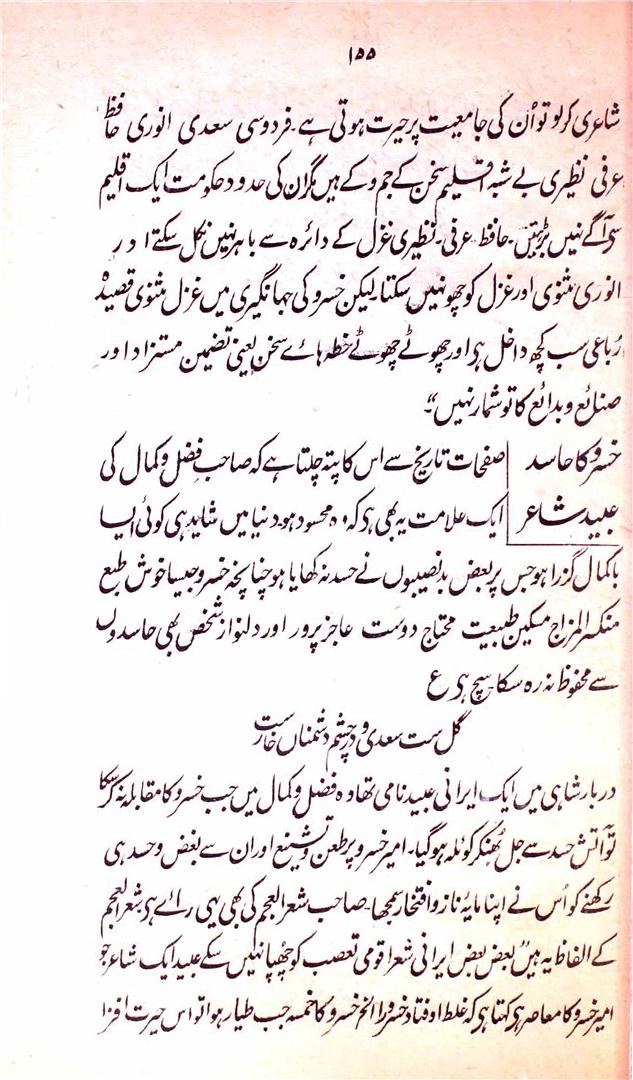 ۱۵۵
شاعری کرلو تو اُن کی جامعیت پر حیرت ہوتی ہے۔ فردوسی سعدی انوری حافظ
عرفی نظیری بے شبہ اقلیم سخن کے جم و کے ہیں مگر ان کی حدود حکومت ایک اقلیم
سے آگے نہیں بڑہتیں۔ حافظ عرفی۔ نظیری غزل کے دائرہ سے باہر نہیں نکل سکتے اور
انوری مثنوی اور غزل کو چھو نہیں سکتا لیکن خسرو کی جہانگیری میں غزل مثنوی قصیدہ
رُباعی سب کچھ داخل ہی اور چھوٹے چھوٹے خطہ ہائے سخن یعنی تضمین مستزاد اور
صنائع و بدائع کا تو شمار نہیں"۔
خسرو کا حاسد صفحات تاریخ سے اس کا پتہ چلتا ہے کہ صاحب فضل و کمال کی
عبید شاعر ایک علامت یہ بھی ہی کہ وہ محسود ہو۔ دنیا میں شاید ہی کوئی ایسا
باکمال گزرا ہو جس پر بعض بدنصیبوں نے حسد نہ کھایا ہو چنانچہ خسرو جیسا خوش طبع
منکسر المزاج مسکین طبیعت محتاج دوست عاجز پرور اور دلنواز شخص بھی حاسدوں
سے محفوظ نہ رہ سکا سچ ہی ع
گل ست سعدی و در چشم دشمناں خارست
دربار شاہی میں ایک ایرانی عبید نامی تھا وہ فضل و کمال میں جب خسرو کا مقابلہ نہ کر سکا
تو آتش حسد سے جل بُھنکر کوئلہ ہوگیا۔ امیر خسرو پر طعن و تشنیع اور ان سے بغض و حسد ہی
رکھنے کو اُس نے اپنا مایۂ ناز و افتخار سمجھا۔ صاحب شعر العجم کی بھی یہی رائے ہی شعر العجم
کے الفاظ یہ ہیں "بعض بعض ایرانی شعرا قومی تعصب کو چُھپا نہیں سکے عبید ایک شاعر جو
امیر خسرو کا معاصر ہی کہتا ہی کہ غلط اوفتاد خسرو را الخ خسرو کا خمسہ جب طیار ہوا تو اس حیرت افزا